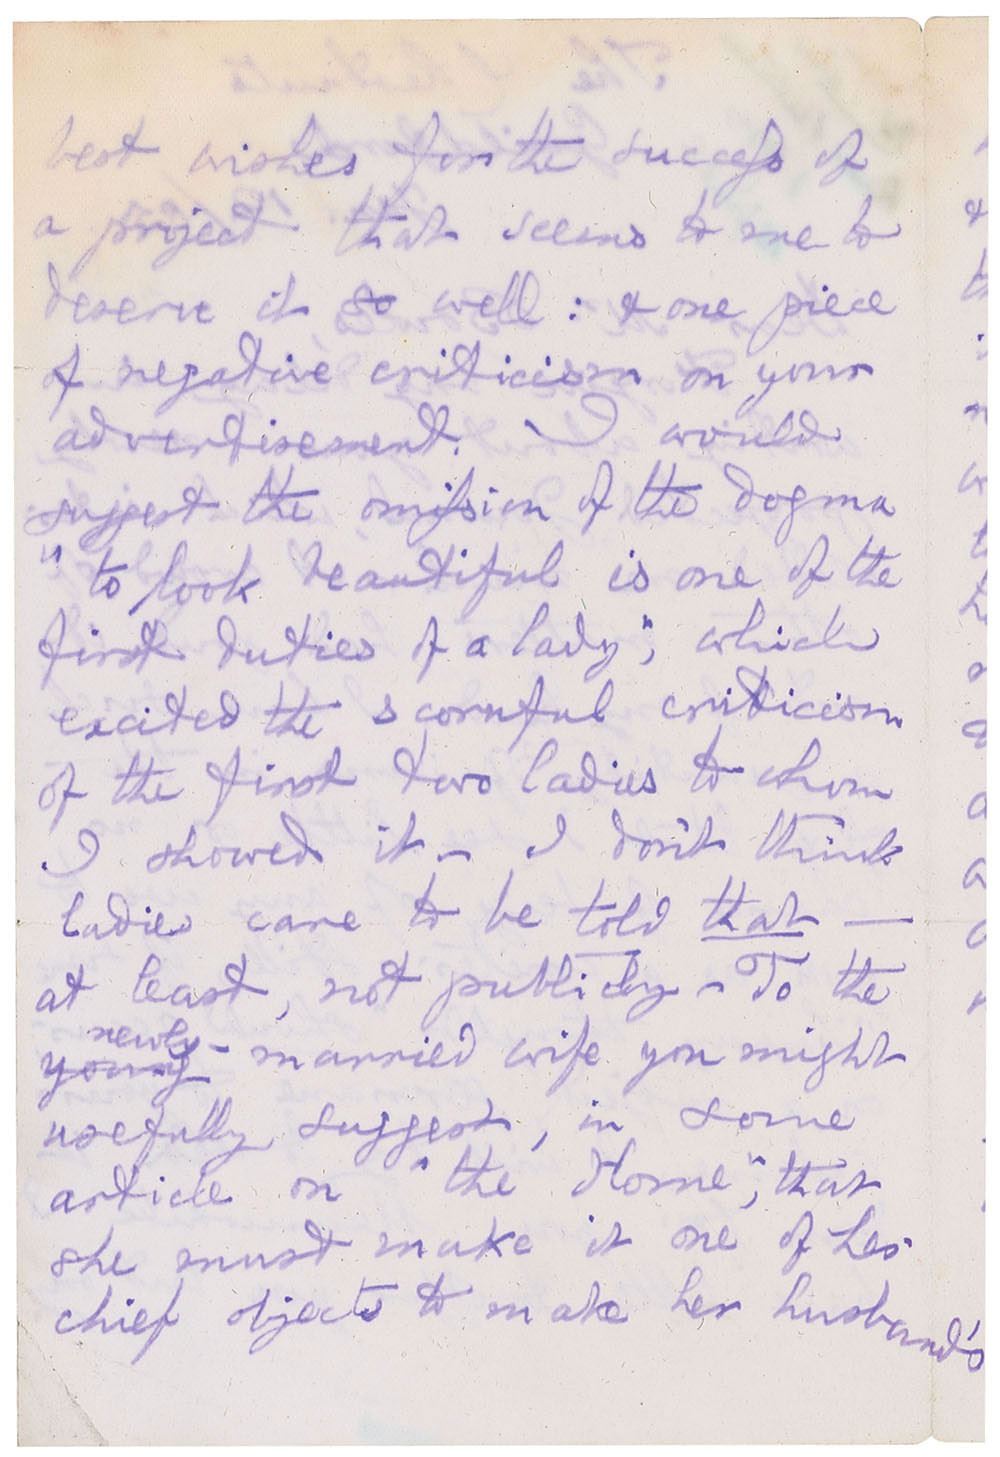 best wishes for the success of
a project that seems to me to
deserve it so well : & one piece
of negative criticism on your
advertisement. I would
suggest the omission of the dogma
"to look beautiful is one of the
first duties of a lady", which
excited the scornful criticism
of the first two ladies to whom
I showed it – I don't think
ladies care to be told that —
at least, not publicly – To the
newly
young-married wife you might
usefully suggest, in some
article on "the Home", that
she must make it one of her
chief objects to make her husband's